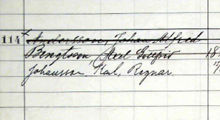 114 Andersson, Johan Alfred
Bengtson, Axel 18
Johansson, Karl, Ragnar